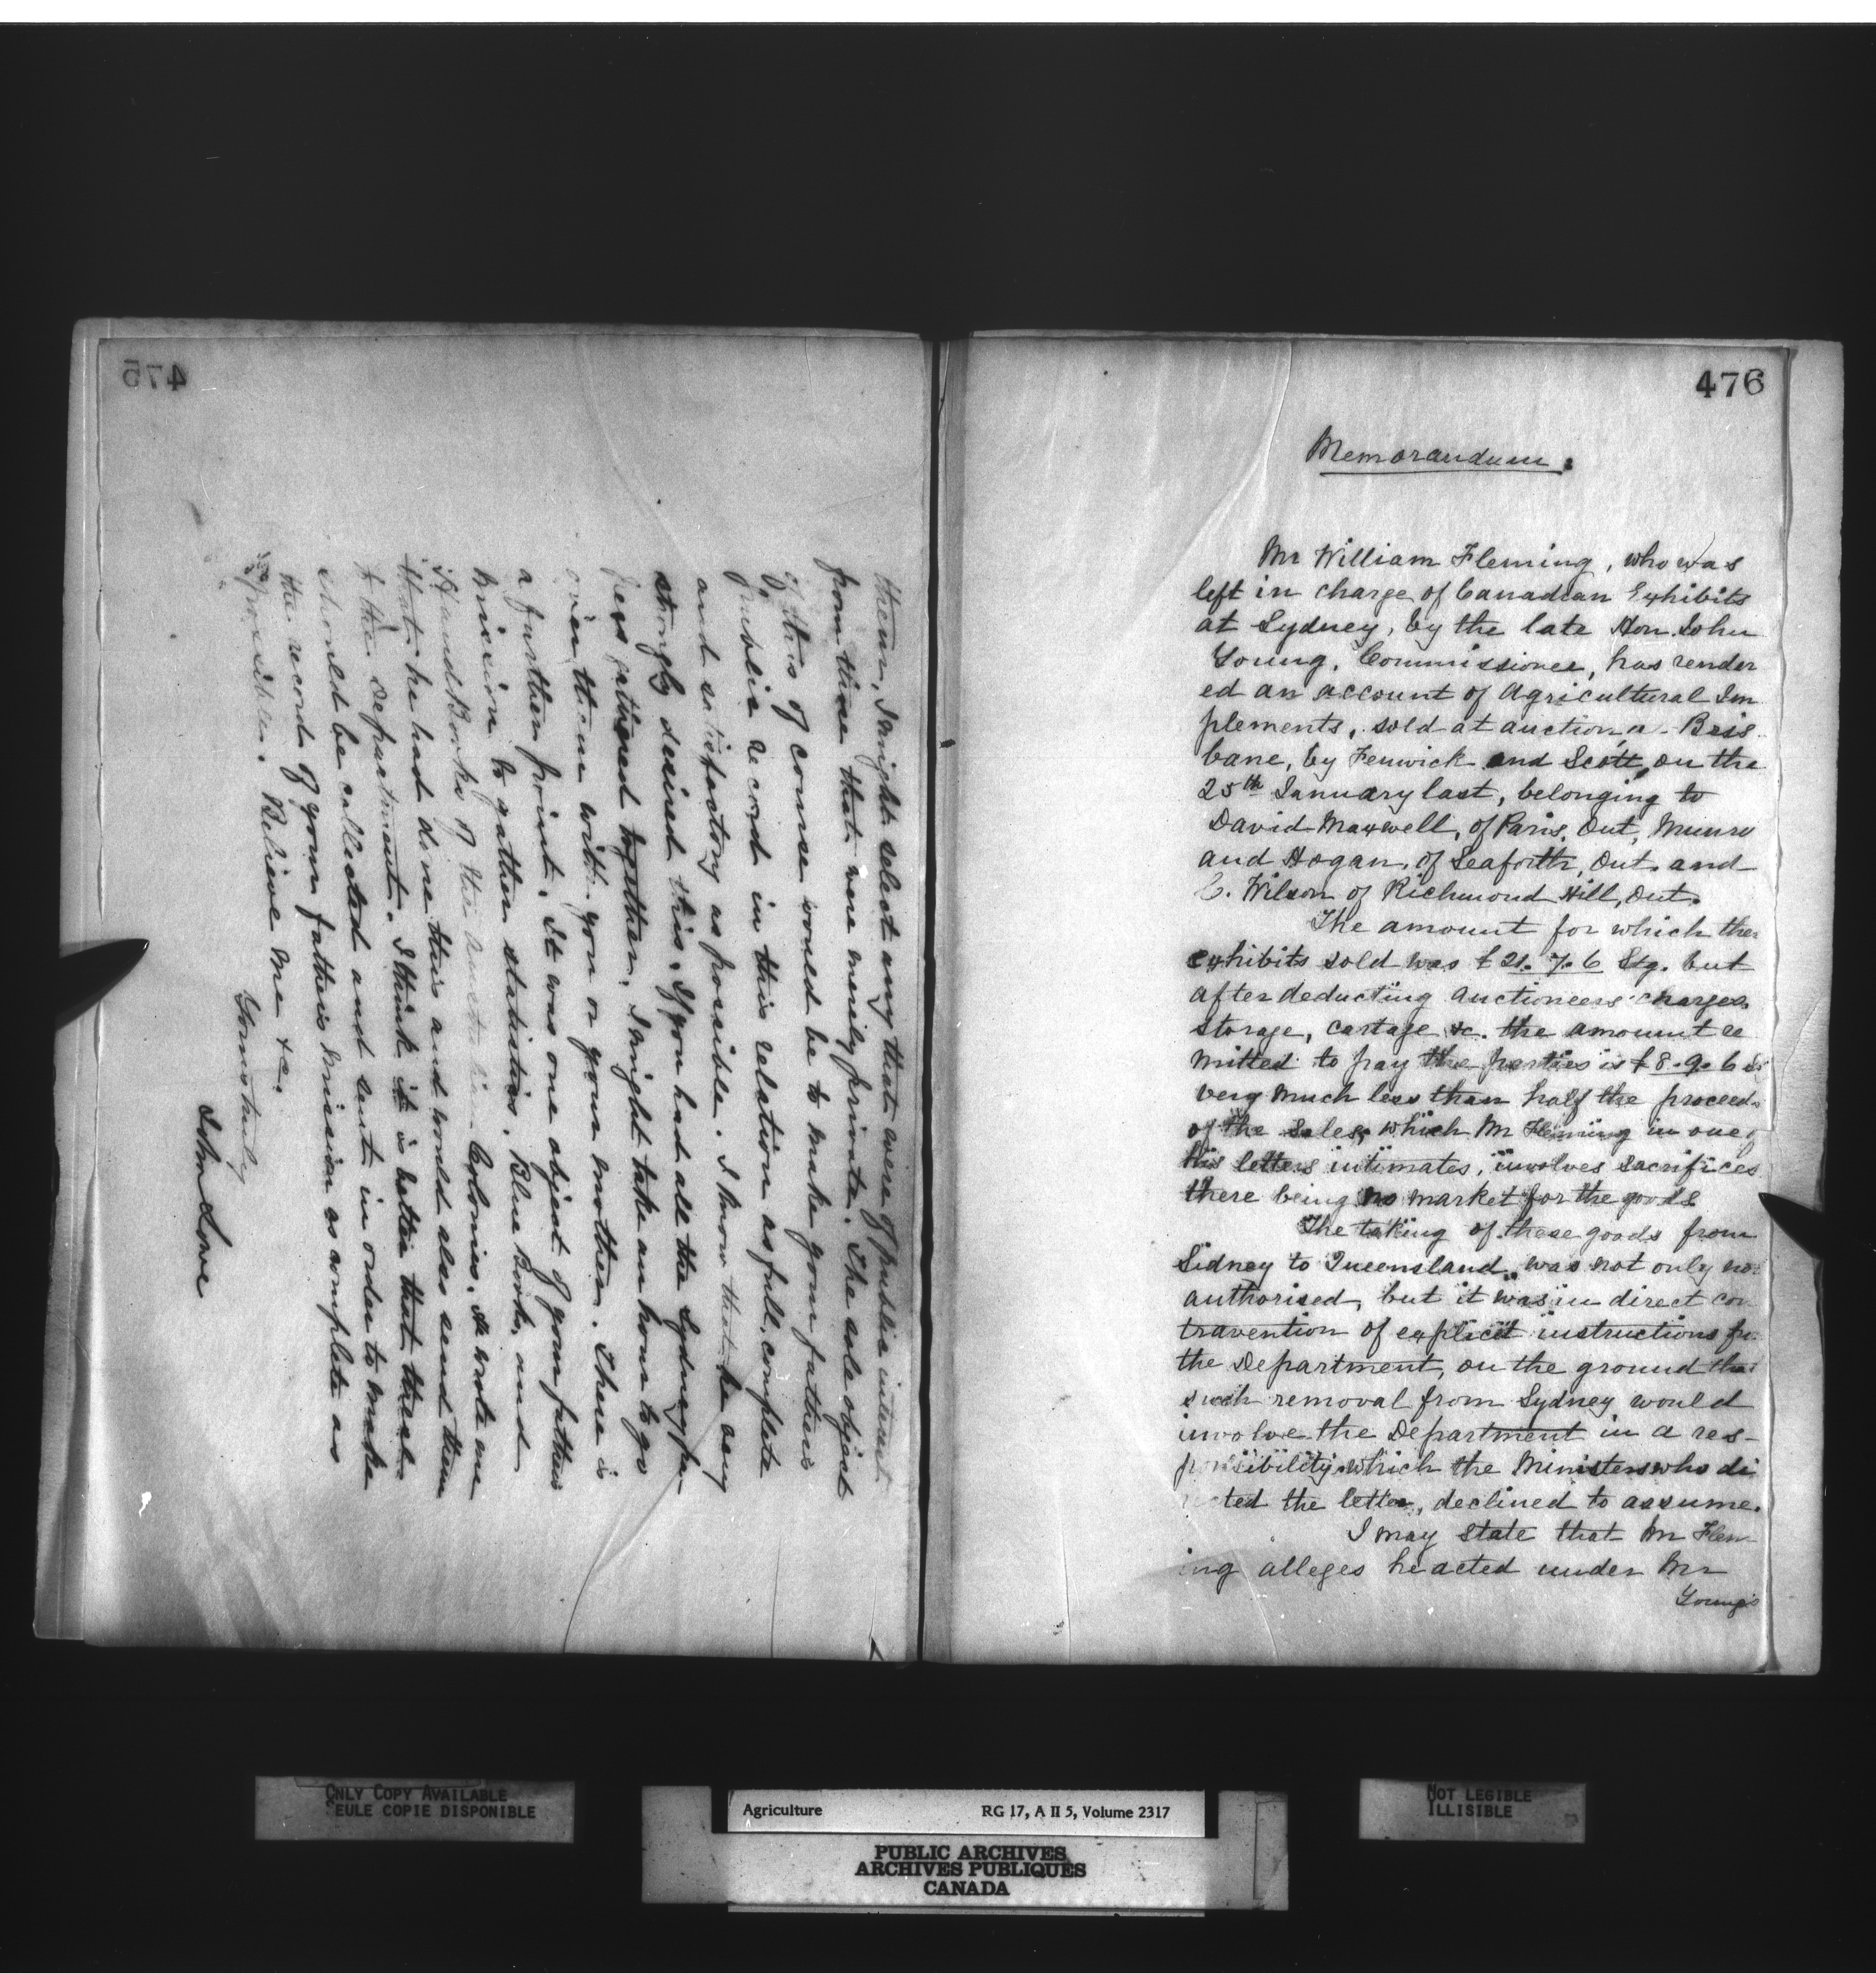 475
them, I might select any that were of public interest
from those that were merely private. The sole object
of this of course would be to make your father's
public record in this relation as full, complete
and satisfactory as possible. I know that he very
strongly desired this. If you had all the Sydney pa-
pers gathered together, I might take an hour to go
over them with you or your mother. There is
a further point. It was one object of your father's
mission to gather statistics, Blue Books, and
Hand Books of the Colonies. He wrote me
that he had done this and would also send them
to the Department. I think it is better that these
should be collected and sent in order to make
the record of your father's mission as complete as
possible. Believe me &c.
Yours truly
John Lowe
476
Memorandum.
Mr William Fleming, who was
left in charge of Canadian Exhibits
at Sydney, by the late Hon. John
Young, Commissioner, has render
ed an account of Agricultural Im
plements, sold at auction, a Bris
bane, by Fenwick and Scott, on the
25th January last, belonging to
David Maxwell, of Paris, Ont, Munro
and Hogan, of Seaforth, Ont. and
C. Wilson of Richmond Hill, Ont.
The amount for which the
exhibits sold was £21.7.6 Stg. but
after deducting auctioneers charges,
storage, cartage &c. the amount re
mitted to pay the parties is £8.9.6
very much less than half the proceeds
of the sales, which Mr Fleming in one
his letters intimates, involves sacrifices
there being no market for the goods
The taking of these goods from
Sidney to Queensland was not only no
authorised, but it was in direct con
travention of explicit instructions fr
the Department, on the ground tha
such removal from Sydney would
involve the Department in a res-
ponsibility which the Minister who di
rected the letter, declined to assume.
I may state that Mr Flem
ing alleges he acted under Mr
Young's
ONLY COPY AVAILABLE
SEULE COPIE DISPONIBLE
Agriculture RG 17, A II 5, Volume 2317
PUBLIC ARCHIVES
ARCHIVES PUBLIQUES
CANADA
NOT LEGIBLE
ILLISIBLE